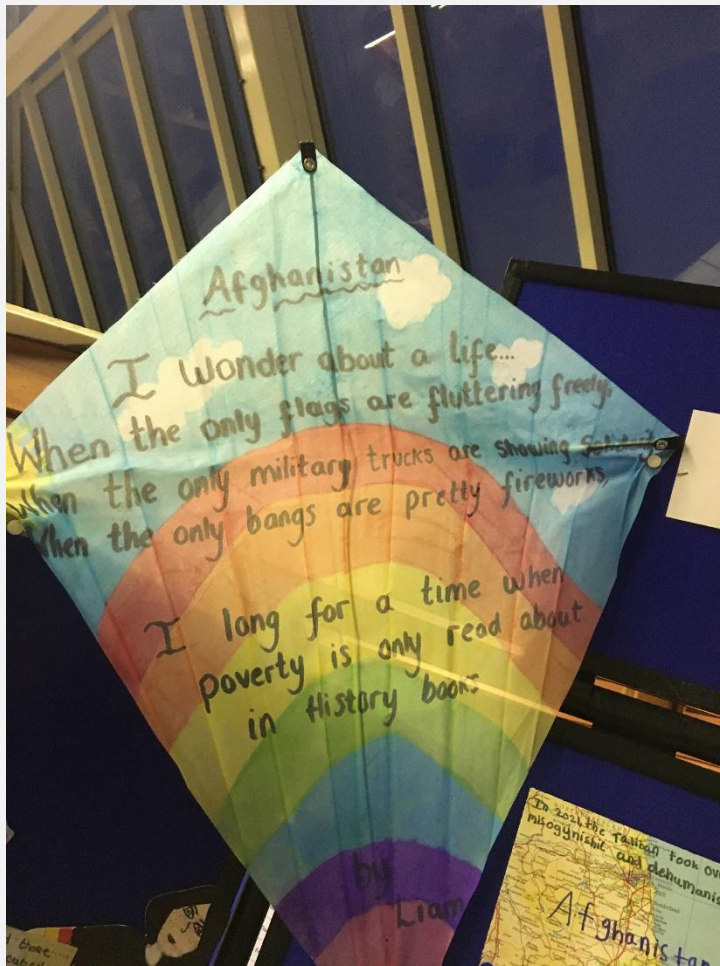 Afghanistan
I wonder about a life...
When the only flags are fluttering freely,
When the only military trucks are showing
When the only bangs are pretty fireworks,
I long for a time when
poverty is only read about
in History books
by
Liam
In 2021 the Taliban took ove
misogynishic and dehumanis
Afghanistan
d those